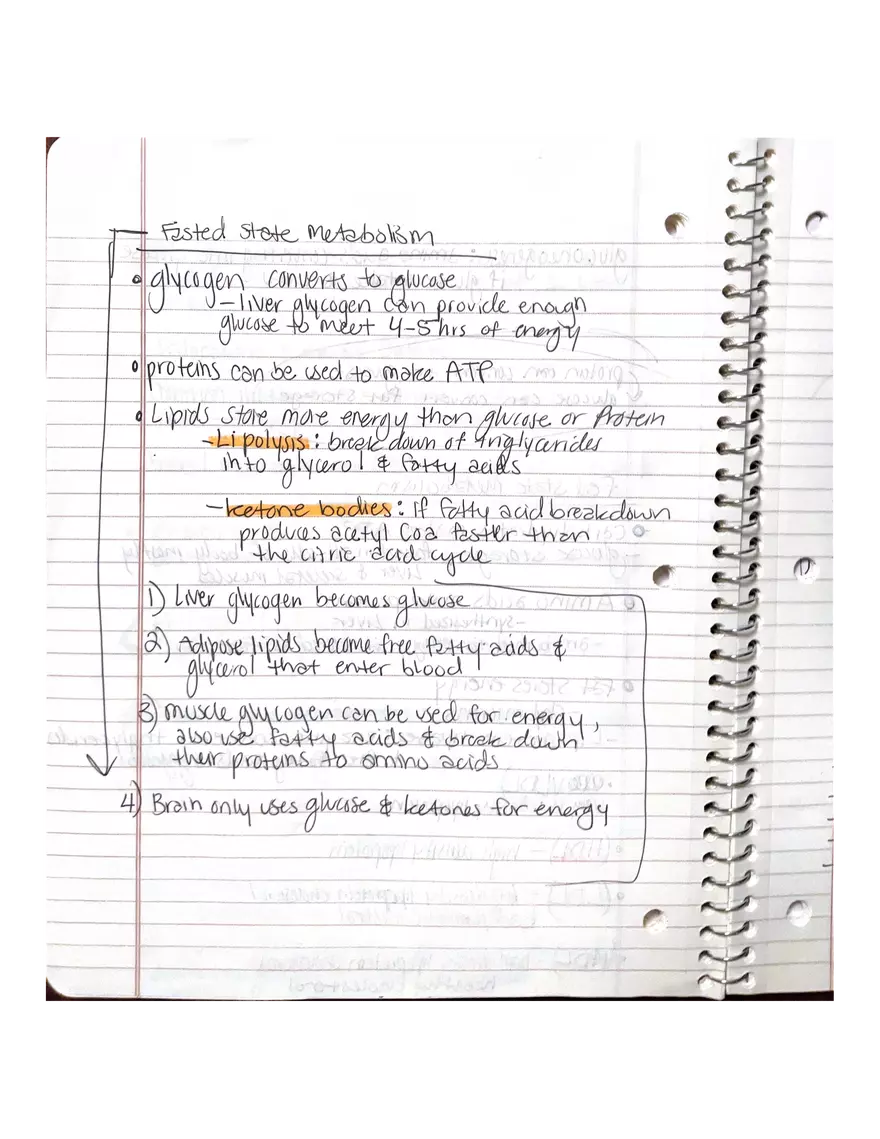 Fasted state metabolism
• glycogen converts to glucose
- liver glycogen can provide enough
glucose to meet 4-5 hrs of energy
• proteins can be used to make ATP
• Lipids store more energy than glucose or Protein
- Lipolysis : break down of triglycerides
into glycerol & fatty acids
- ketone bodies : if fatty acid breakdown
produces acetyl Coa faster than
the citric acid cycle
1) Liver glycogen becomes glucose
2) Adipose lipids become free fatty acids &
glycerol that enter blood
3) muscle glycogen can be used for energy,
also use fatty acids & break down
their proteins to amino acids
4) Brain only uses glucose & ketones for energy